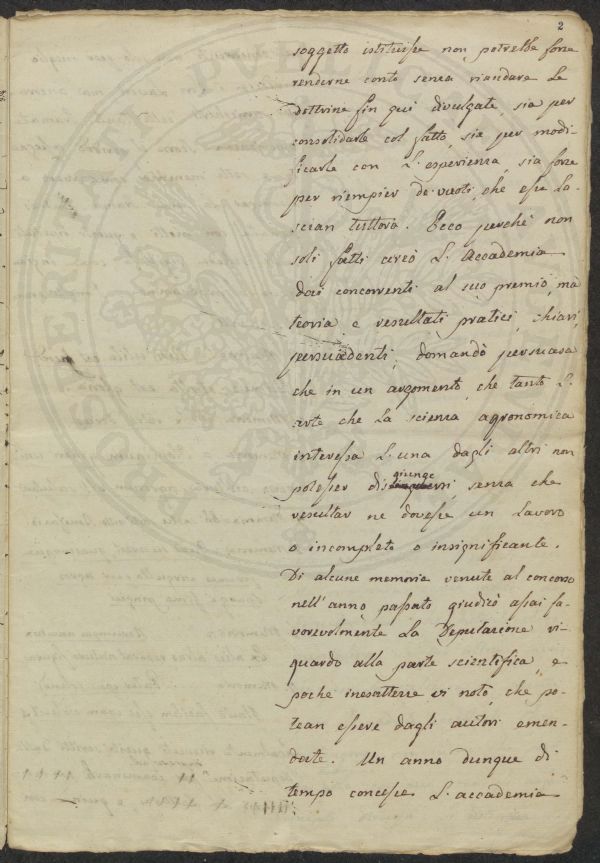 2
soggetto istituisse non potrebbe forse
renderne conto senza riandare le
dottrine fin qui divulgate, sia per
consolidarle col fatto, sia per modi-
ficarle con l'esperienza, sia forse
per riempier de' vuoti, che esse la-
scian tuttora. Ecco perché non
soli fatti cercò l'Accademia
dai concorrenti al suo premio, ma
teoria e resultati pratici, chiari,
persuadenti, domandò persuasa
che in un argomento, che tanto l'
arte che la scienza agronomica
interessa l'una dagli altri non
potesser disgiungersi, senza che
resultar ne dovesse un lavoro
o incompleto o insignificante.
Di alcune memorie venute al concorso
nell'anno passato giudicò assai fa-
vorevolmente la Deputazione ri-
guardo alla parte scientifica, e
poche inesattezze vi notò, che po-
tean essere dagli autori emen-
date. Un anno dunque di
tempo concesse l'accademia
POSTERITATI